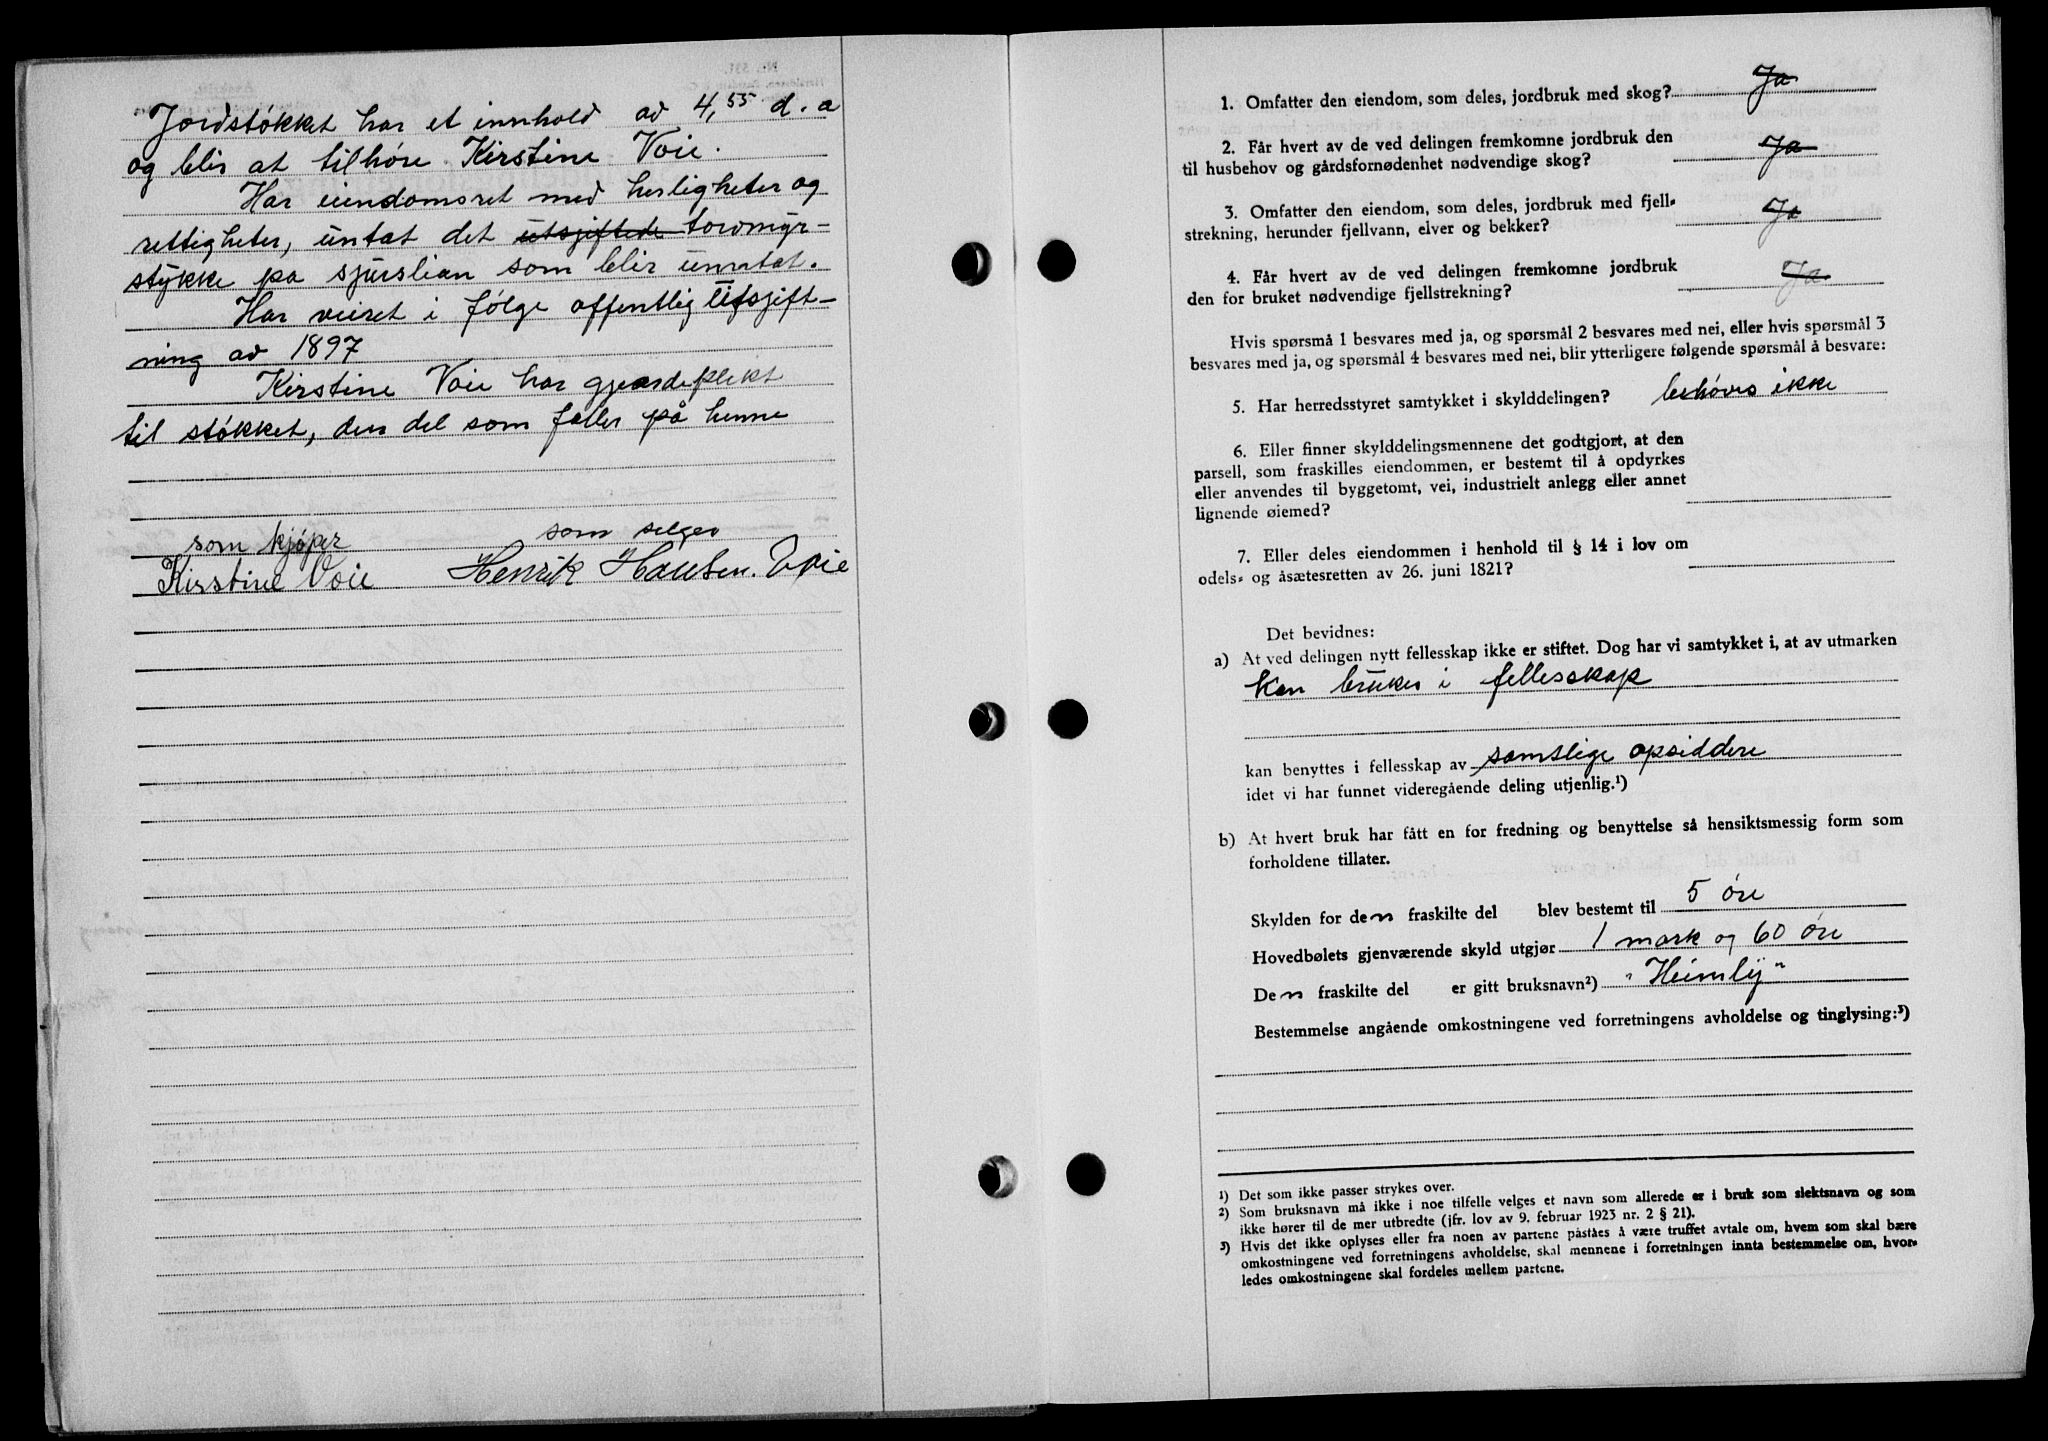 Jordstøkket har et innhold av 4,55 d. a
og blir at tilhøre Kirstine Voie.
Har eiendomsret med herligheter og
rettigheter, untat det utsjiftede torvmyr-
stykke på sjurslian som blir unntat.
Har veiret i følge offentlig utsjift-
ning av 1897
Kirstine Voie har gjerdeplikt
til støkket, den del som faller på henne
som kjøper som selger
Kirstine Voie Henrik Hansen. Voie
1. Omfatter den eiendom, som deles, jordbruk med skog? Ja
2. Får hvert av de ved delingen fremkomne jordbruk den
til husbehov og gårdsfornødenhet nødvendige skog? Ja
3. Omfatter den eiendom, som deles, jordbruk med fjell-
strekning, herunder fjellvann, elver og bekker? Ja
4. Får hvert av de ved delingen fremkomne jordbruk
den for bruket nødvendige fjellstrekning? Ja
Hvis spørsmå 1 besvares med ja, og spørsmål 2 besvares med nei, eller hvis spørsmål 3
besvares med ja, og spørsmål 4 besvares med nei, blir ytterligere følgende spørsmål å besvare:
5. Har herredsstyret samtykket i skylddelingen? behøves ikke
6. Eller finner skylddelingsmennene det godtgjort, at den
parsell, som fraskilles eiendommen, er bestemt til å opdyrkes
eller anvendes til byggetomt, vei, industrielt anlegg eller annet
lignende øiemed?
7. Eller deles eiendommen i henhold til § 14 i lov om
odels- og åsætesretten av 26. juni 1821?
Det bevidnes:
a) At ved delingen nytt fellesskap ikke er stiftet. Dog har vi samtykket i, at av utmarken
kan brukes i fellesskap
kan benyttes i fellesskap av samtlige opsiddere
idet vi har funnet videregående deling utjenlig.¹)
b) At hvert bruk har fått en for fredning og benyttelse så hensiktsmessig form som
forholdene tillater.
Skylden for den fraskilte del blev bestemt til 5 øre
Hovedbølets gjenværende skyld utgjør 1 mark og 60 øre
Den fraskilte del er gitt bruksnavn²) "Heimly"
Bestemmelse angående omkostningene ved forretningens avholdelse og tinglysing:³)
¹) Det som ikke passer strykes over.
²) Som bruksnavn må ikke i noe tilfelle velges et navn som allerede er i bruk som slektsnavn og som
ikke hører til de mer utbredte (jfr. lov av 9. februar 1923 nr. 2 § 21).
³) Hvis det ikke oplyses eller fra noen av partene påståes å være truffet avtale om, hvem som skal bære
omkostningene ved forretningens avholdelse, skal mennene i forretningen innta bestemmelse om, hvor-
ledes omkostningene skal fordeles mellem partene.